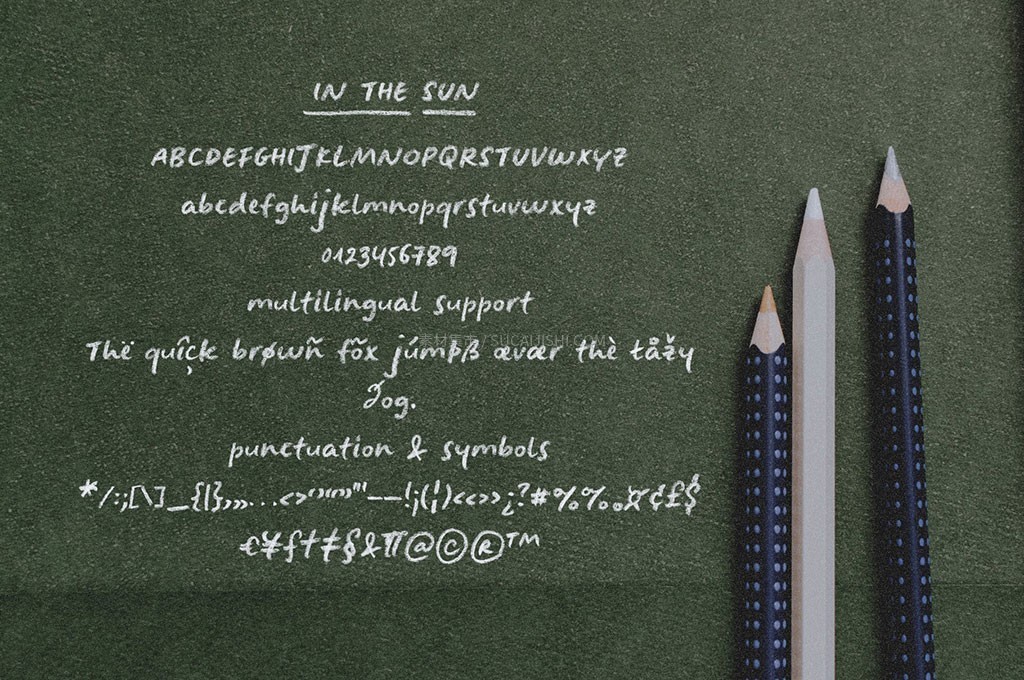 IN THE SUN
ABCDEFGHIJKLMNOPQRSTUVWXYZ
abcdefghijklmnopqrstuvwxyz
0123456789
multilingual support
Thë quîçk brøwñ fõx júmÞß ævær thè łåžy
ðog.
punctuation & symbols
*/:;[\]_{|},„…<>‘’“”'"–—!¡(¦)‹«›»¿?#%‰¤¢£$
€¥ƒ†‡§&¶@©®™
SUCAIJISHI.COM